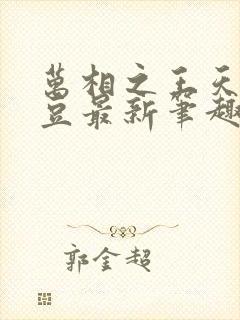 萬相之王天
豆最新筆趣
郭金超